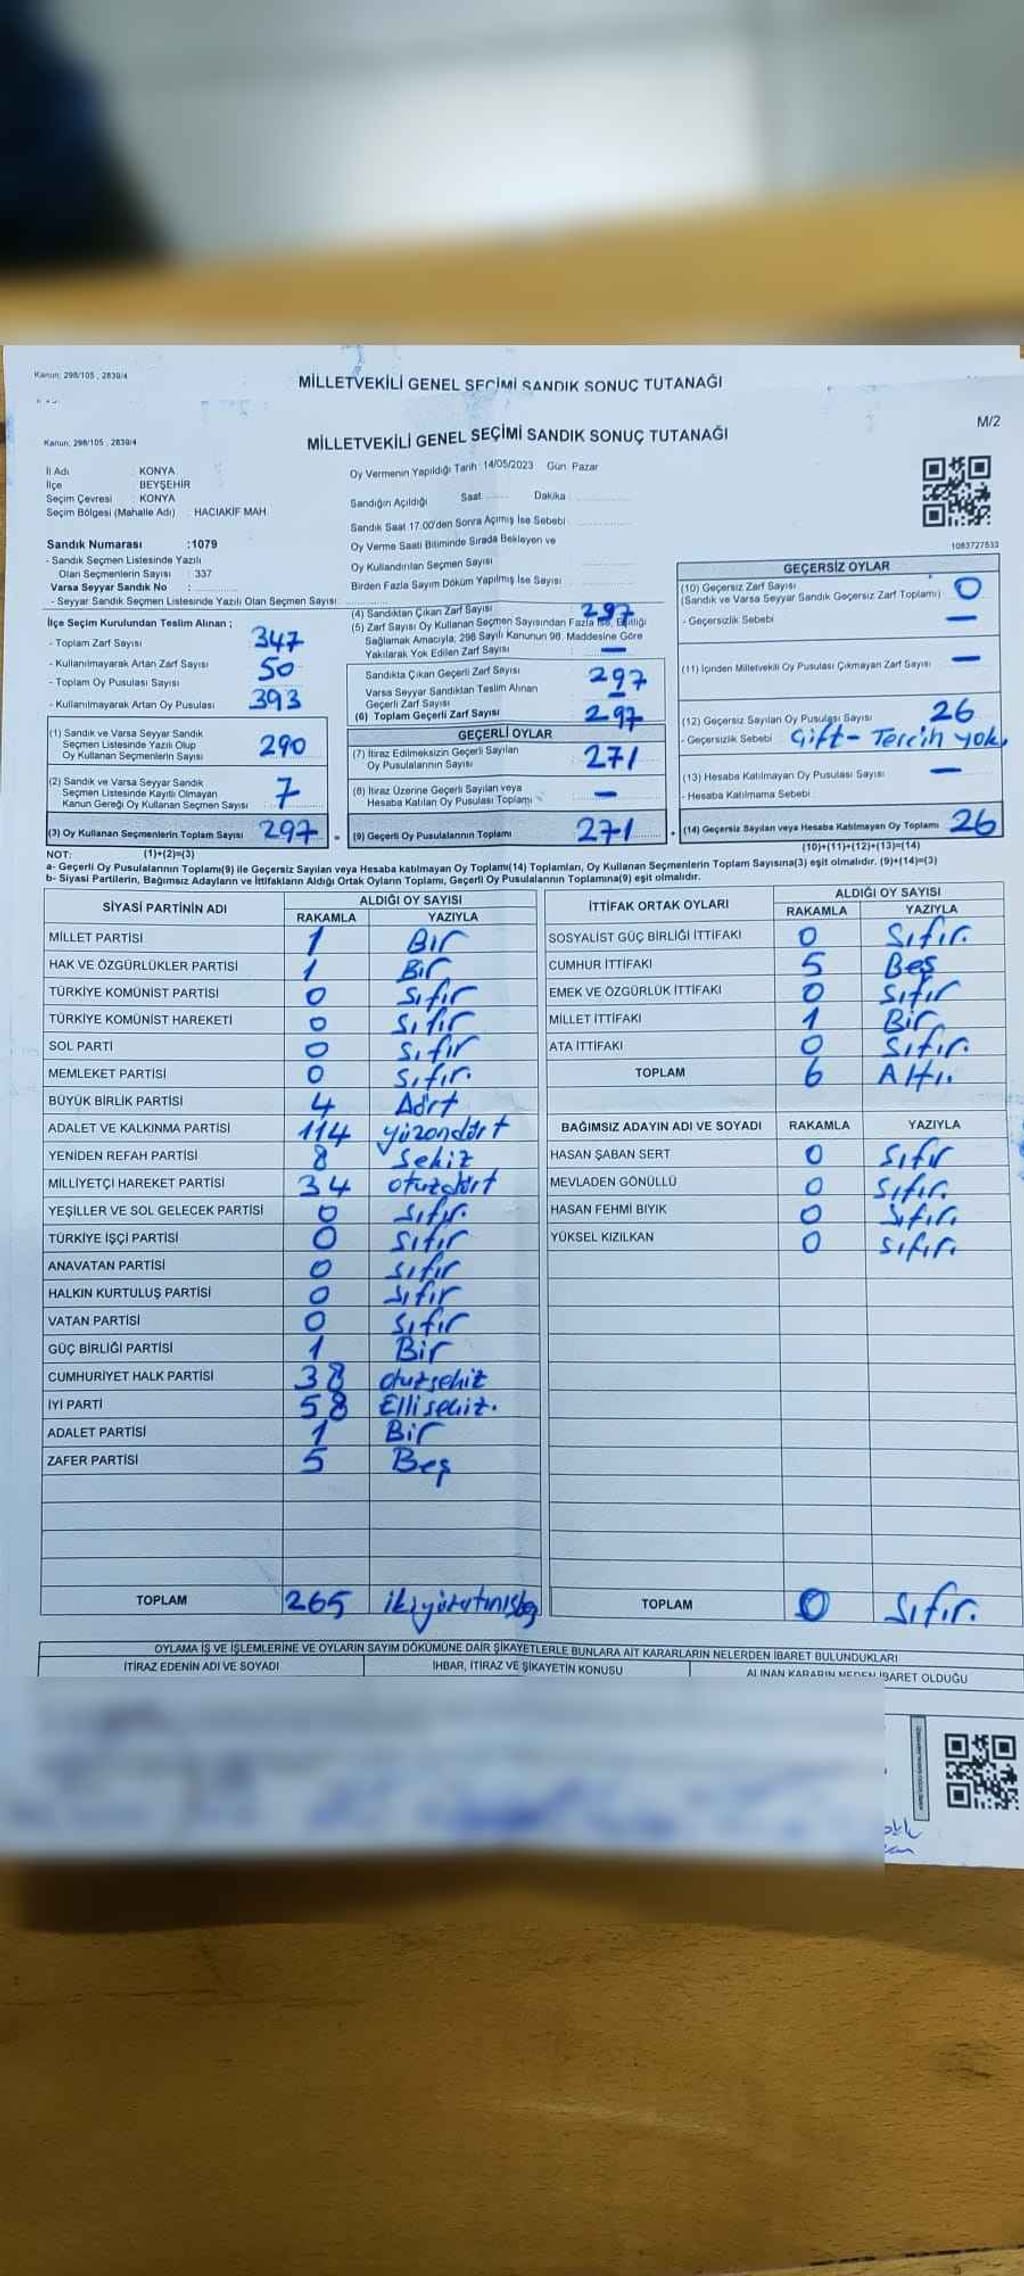 Kanun: 298/105 , 2839/4
MİLLETVEKİLİ GENEL SEÇİMİ SANDIK SONUÇ TUTANAĞI
M/2
Kanun: 298/105 , 2839/4
MİLLETVEKİLİ GENEL SEÇİMİ SANDIK SONUÇ TUTANAĞI
İl Adı KONYA
İlçe BEYŞEHİR
Seçim Çevresi KONYA
Seçim Bölgesi (Mahalle Adı) HACIAKİF MAH.
Sandık Numarası :1079
- Sandık Seçmen Listesinde Yazılı
Olan Seçmenlerin Sayısı : 337
Varsa Seyyar Sandık No :
- Seyyar Sandık Seçmen Listesinde Yazılı Olan Seçmen Sayısı
İlçe Seçim Kurulundan Teslim Alınan ;
- Toplam Zarf Sayısı 347
- Kullanılmayarak Artan Zarf Sayısı 50
- Toplam Oy Pusulası Sayısı
- Kullanılmayarak Artan Oy Pusulası 393
(1) Sandık ve Varsa Seyyar Sandık
Seçmen Listesinde Yazılı Olup
Oy Kullanan Seçmenlerin Sayısı 290
(2) Sandık ve Varsa Seyyar Sandık
Seçmen Listesinde Kayıtlı Olmayan
Kanun Gereği Oy Kullanan Seçmen Sayısı 7
(3) Oy Kullanan Seçmenlerin Toplam Sayısı 297
Oy Vermenin Yapıldığı Tarih 14/05/2023 Gün Pazar
Sandığın Açıldığı Saat Dakika
Sandık Saat 17.00'den Sonra Açılmış İse Sebebi
Oy Verme Saati Bitiminde Sırada Bekleyen ve
Oy Kullandırılan Seçmen Sayısı
Birden Fazla Sayım Döküm Yapılmış İse Sayısı
(4) Sandıktan Çıkan Zarf Sayısı 297
(5) Zarf Sayısı Oy Kullanan Seçmen Sayısından Fazla İse, Eşitliği
Sağlamak Amacıyla, 298 Sayılı Kanunun 98. Maddesine Göre
Yakılarak Yok Edilen Zarf Sayısı : —
Sandıkta Çıkan Geçerli Zarf Sayısı 297
Varsa Seyyar Sandıktan Teslim Alınan
Geçerli Zarf Sayısı —
(6) Toplam Geçerli Zarf Sayısı 297
GEÇERLİ OYLAR
(7) İtiraz Edilmeksizin Geçerli Sayılan
Oy Pusulalarının Sayısı 271
(8) İtiraz Üzerine Geçerli Sayılan veya
Hesaba Katılan Oy Pusulası Toplamı —
(9) Geçerli Oy Pusulalarının Toplamı 271
1083727533
GEÇERSİZ OYLAR
(10) Geçersiz Zarf Sayısı 0
(Sandık ve Varsa Seyyar Sandık Geçersiz Zarf Toplamı)
- Geçersizlik Sebebi —
(11) İçinden Milletvekili Oy Pusulası Çıkmayan Zarf Sayısı —
(12) Geçersiz Sayılan Oy Pusulası Sayısı 26
- Geçersizlik Sebebi Çift - Tercih yok,
(13) Hesaba Katılmayan Oy Pusulası Sayısı —
- Hesaba Katılmama Sebebi
(14) Geçersiz Sayılan veya Hesaba Katılmayan Oy Toplamı 26
NOT: (1)+(2)=(3) (10)+(11)+(12)+(13)=(14)
a- Geçerli Oy Pusulalarının Toplamı(9) ile Geçersiz Sayılan veya Hesaba katılmayan Oy Toplamı(14) Toplamları, Oy Kullanan Seçmenlerin Toplam Sayısına(3) eşit olmalıdır. (9)+(14)=(3)
b- Siyasi Partilerin, Bağımsız Adayların ve İttifakların Aldığı Ortak Oyların Toplamı, Geçerli Oy Pusulalarının Toplamına(9) eşit olmalıdır.
SİYASİ PARTİNİN ADI ALDIĞI OY SAYISI
RAKAMLA YAZIYLA
MİLLET PARTİSİ 1 Bir
HAK VE ÖZGÜRLÜKLER PARTİSİ 1 Bir
TÜRKİYE KOMÜNİST PARTİSİ 0 Sıfır
TÜRKİYE KOMÜNİST HAREKETİ 0 Sıfır
SOL PARTİ 0 Sıfır
MEMLEKET PARTİSİ 0 Sıfır.
BÜYÜK BİRLİK PARTİSİ 4 Dört
ADALET VE KALKINMA PARTİSİ 114 yüzondört
YENİDEN REFAH PARTİSİ 8 Sekiz
MİLLİYETÇİ HAREKET PARTİSİ 34 otuzdört
YEŞİLLER VE SOL GELECEK PARTİSİ 0 Sıfır.
TÜRKİYE İŞÇİ PARTİSİ 0 Sıfır
ANAVATAN PARTİSİ 0 Sıfır
HALKIN KURTULUŞ PARTİSİ 0 Sıfır
VATAN PARTİSİ 0 Sıfır
GÜÇ BİRLİĞİ PARTİSİ 1 Bir
CUMHURİYET HALK PARTİSİ 38 otuzsekiz
İYİ PARTİ 58 Ellisekiz.
ADALET PARTİSİ 1 Bir
ZAFER PARTİSİ 5 Beş
TOPLAM 265 ikiyüzatmışbeş
İTTİFAK ORTAK OYLARI ALDIĞI OY SAYISI
RAKAMLA YAZIYLA
SOSYALİST GÜÇ BİRLİĞİ İTTİFAKI 0 Sıfır.
CUMHUR İTTİFAKI 5 Beş
EMEK VE ÖZGÜRLÜK İTTİFAKI 0 Sıfır
MİLLET İTTİFAKI 1 Bir
ATA İTTİFAKI 0 Sıfır.
TOPLAM 6 Altı.
BAĞIMSIZ ADAYIN ADI VE SOYADI RAKAMLA YAZIYLA
HASAN ŞABAN SERT 0 Sıfır
MEVLADEN GÖNÜLLÜ 0 Sıfır.
HASAN FEHMİ BIYIK 0 Sıfır.
YÜKSEL KIZILKAN 0 Sıfır.
TOPLAM 0 Sıfır.
OYLAMA İŞ VE İŞLEMLERİNE VE OYLARIN SAYIM DÖKÜMÜNE DAİR ŞİKAYETLERLE BUNLARA AİT KARARLARIN NELERDEN İBARET BULUNDUKLARI
İTİRAZ EDENİN ADI VE SOYADI İHBAR, İTİRAZ VE ŞİKAYETİN KONUSU ALINAN KARARIN NEDEN İBARET OLDUĞU